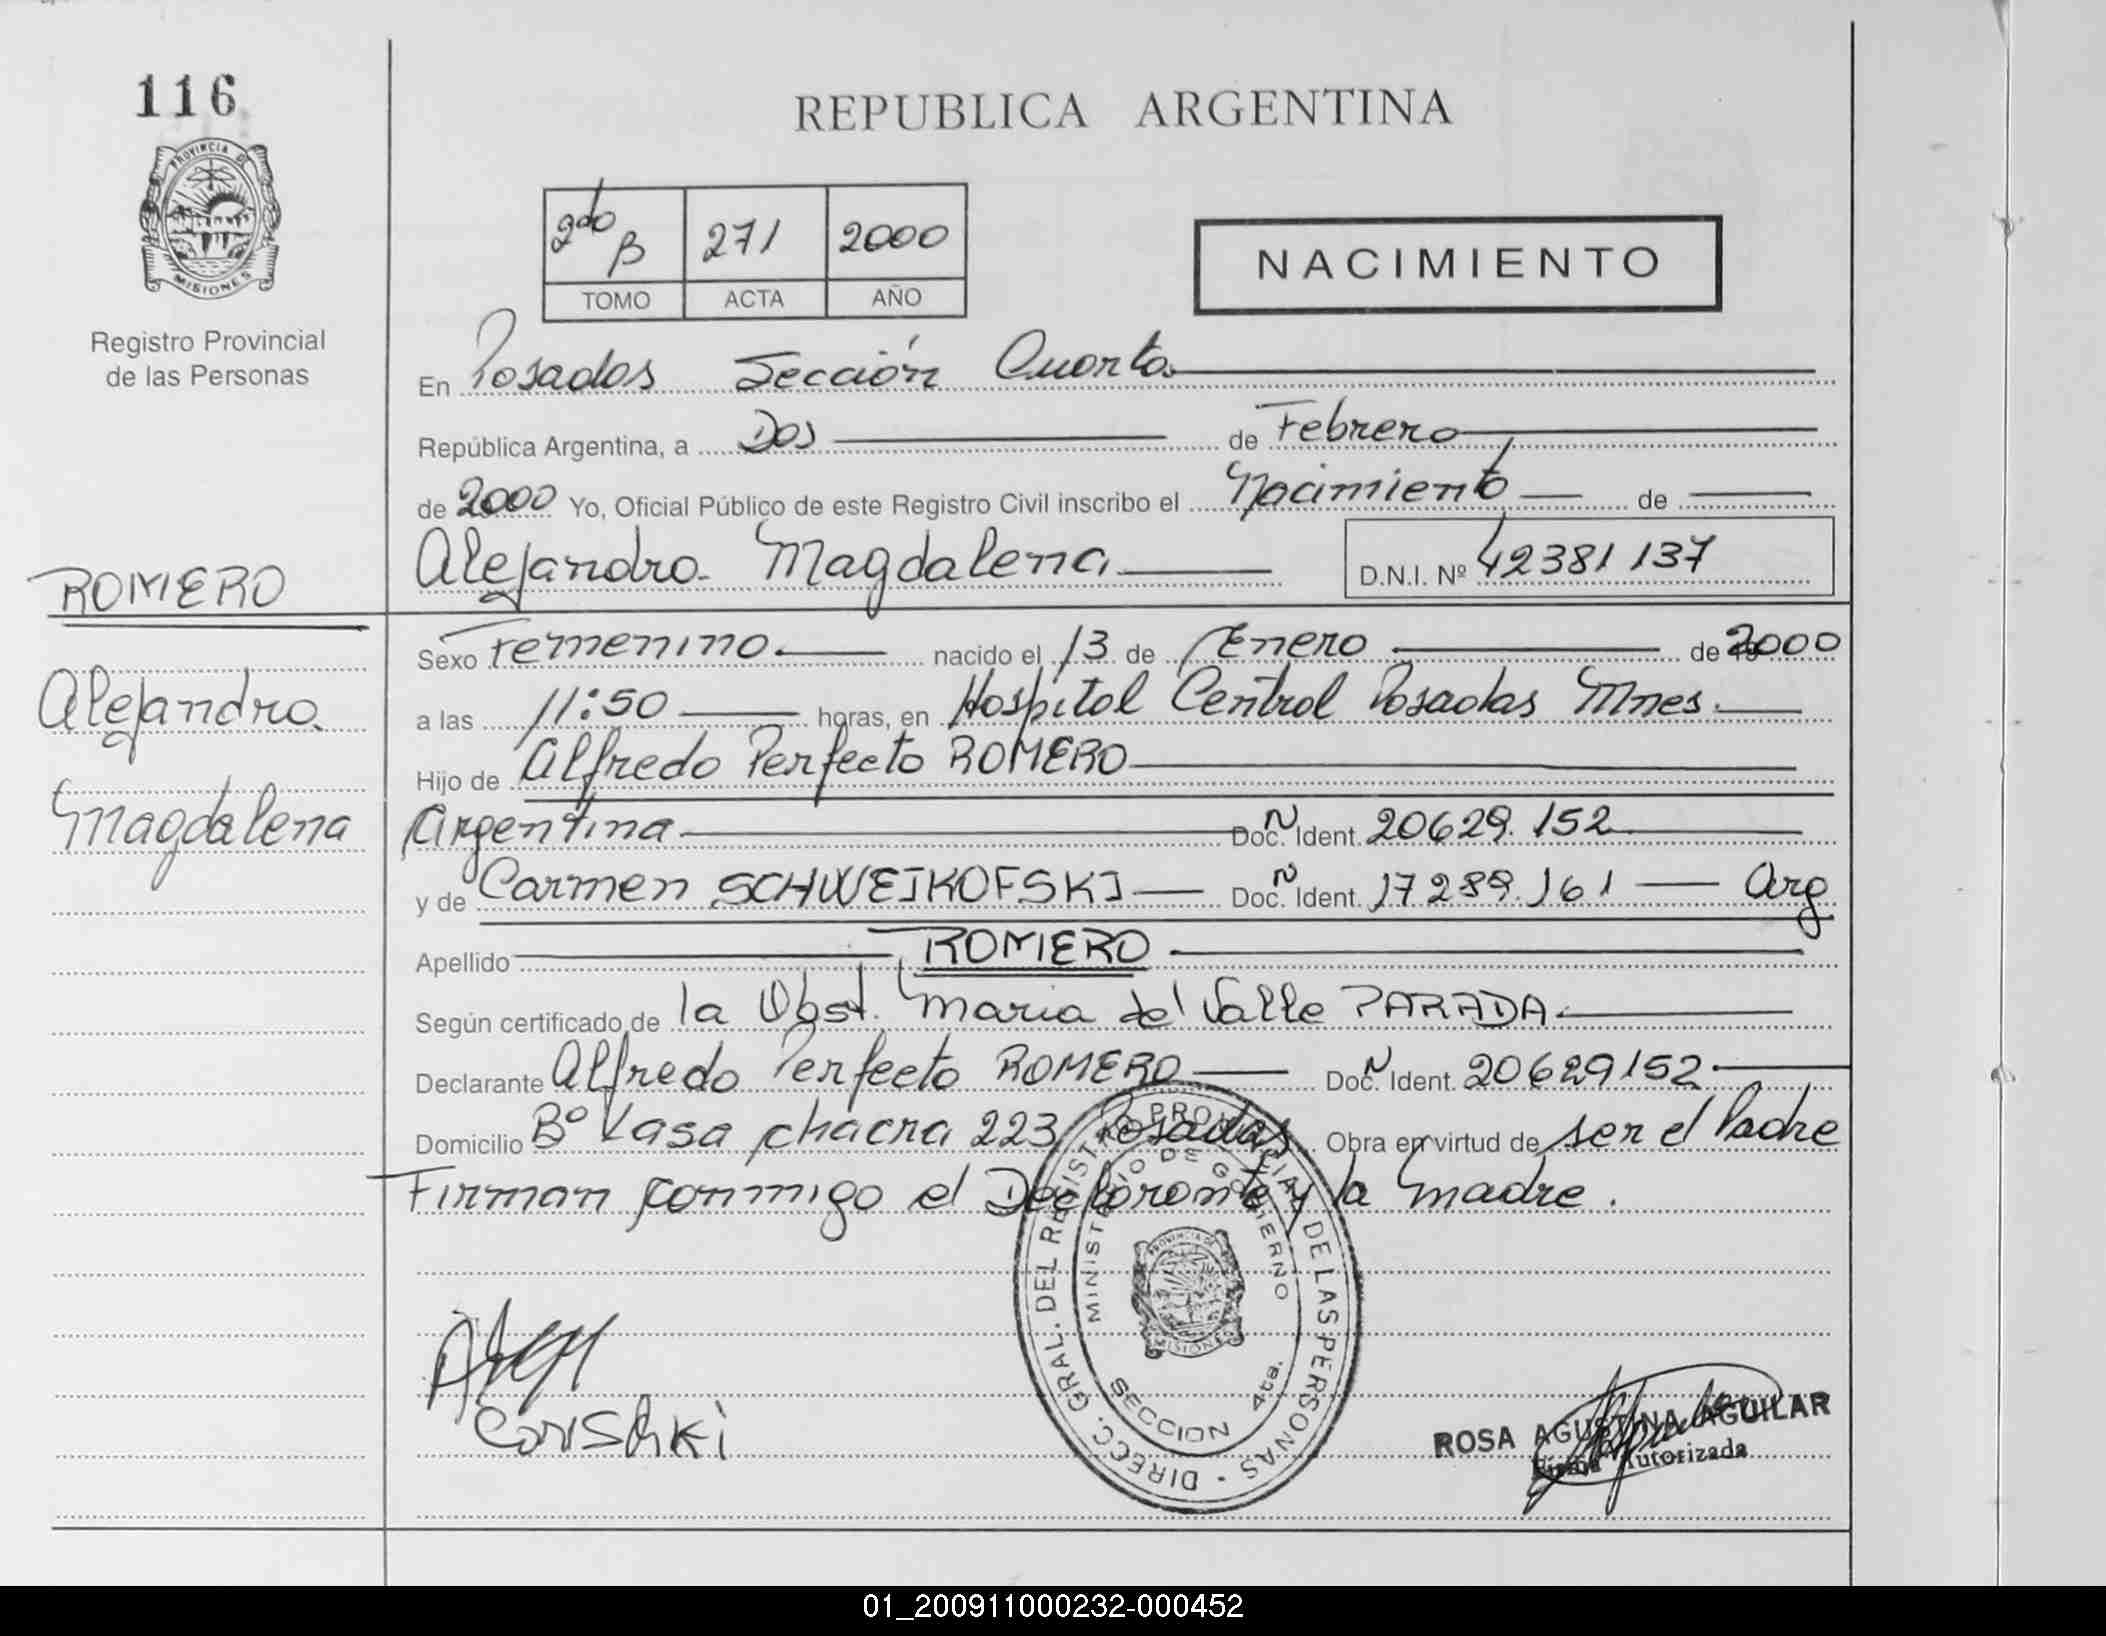 116
PROVINCIA DE
MISIONES
Registro Provincial
de las Personas
ROMERO
Alejandra
Magdalena
REPUBLICA ARGENTINA
2do B 271 2000
TOMO ACTA AÑO
NACIMIENTO
En Posadas Sección Cuarta
República Argentina, a Dos de Febrero
de 2000 Yo, Oficial Público de este Registro Civil inscribo el Nacimiento de
Alejandra Magdalena D.N.I. Nº 42381137
Sexo Femenino nacido el 13 de Enero de 2000
a las 11:50 horas, en Hospital Central Posadas Mnes.
Hijo de Alfredo Perfecto ROMERO
Argentina Doc. N Ident. 20629.152
y de Carmen SCHWEIKOFSKI Doc. N Ident. 17289.161 Arg
Apellido ROMERO
Según certificado de la Obst. Maria del Valle PARADA.
Declarante Alfredo Perfecto ROMERO Doc. N Ident. 20629152
Domicilio Bº Kasa chacra 223 Posadas Obra en virtud de ser el Padre
Firman conmigo el Declarante y la Madre.
DIRECC. GRAL. DEL REGISTRO PROVINCIAL DE LAS PERSONAS
MINISTERIO DE GOBIERNO
PROVINCIA DE
MISIONES
SECCION 4ta.
ROSA AGUSTINA AGUILAR
Firma Autorizada
01_200911000232-000452